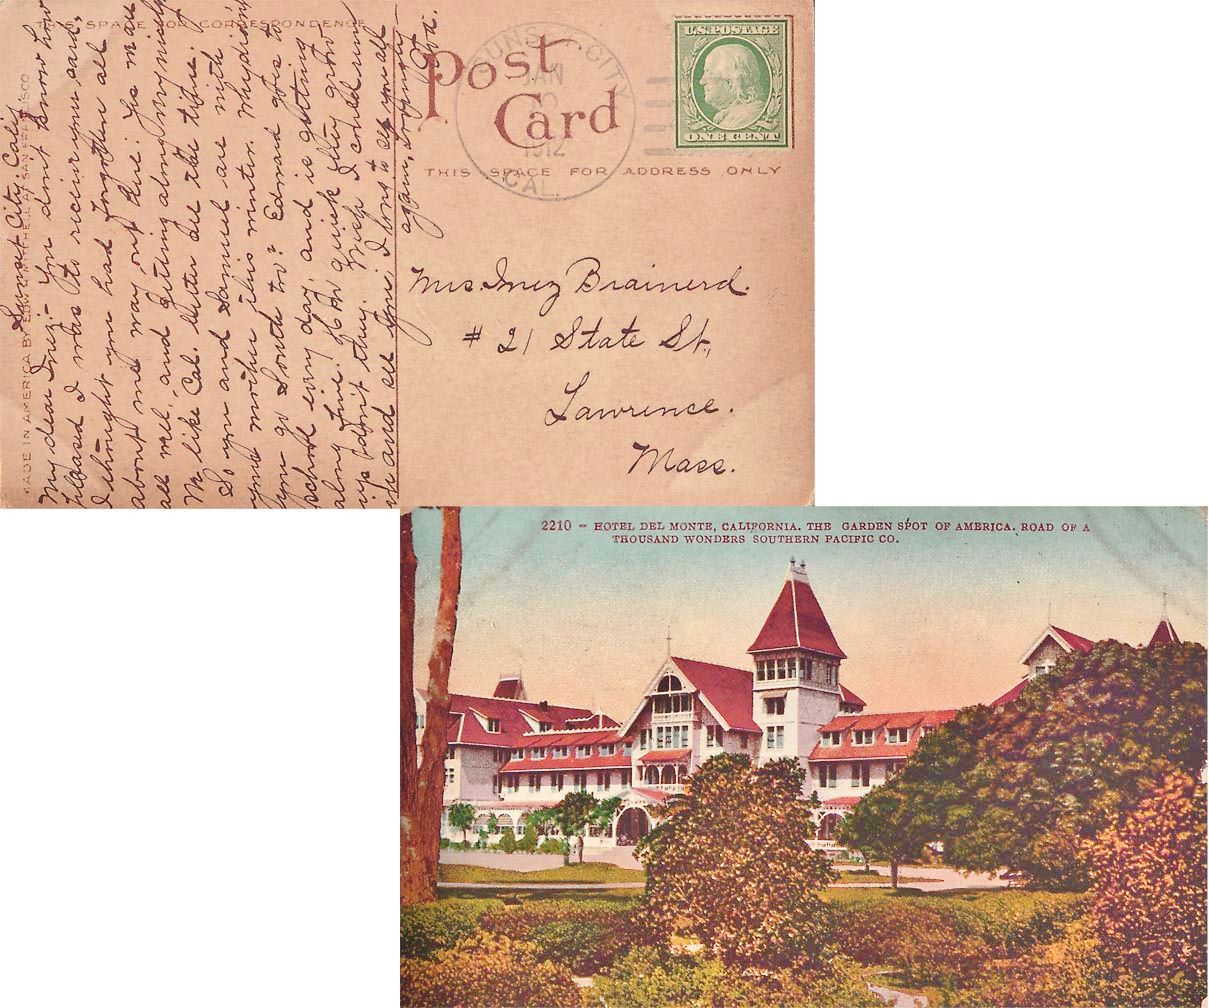 THIS SPACE FOR CORRESPONDENCE
Post
Card
THIS SPACE FOR ADDRESS ONLY
MADE IN AMERICA BY EDW. H. MITCHELL, SAN FRANCISCO
SUNSET CITY
JAN
1912
CAL.
U.S. POSTAGE
ONE CENT
Sunset City, Calif.
My dear Inez - You don't know how
pleased I was to receive your card,
I thought you had forgotten all
about me way out here. Yes
all well, and getting along nicely
We like Cal. better all the time.
So you and Samuel are with
your mother this winter. Why didn't
you go South too? Edward goes to
school every day, and is getting
along fine.
up don't they. Wish I could run
in and see you. I long to see you all
again,
Mrs. Inez Brainerd.
# 21 State St.,
Lawrence.
Mass.
2210 - HOTEL DEL MONTE, CALIFORNIA. THE GARDEN SPOT OF AMERICA. ROAD OF A
THOUSAND WONDERS SOUTHERN PACIFIC CO.